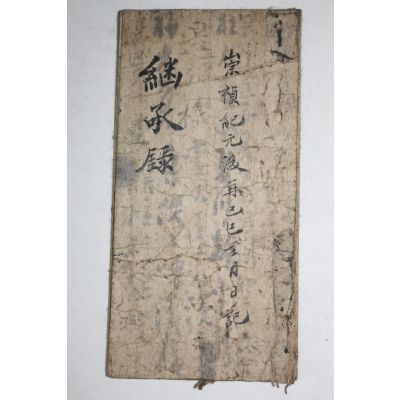 崇禎紀元後再己巳至月日記
継承錄